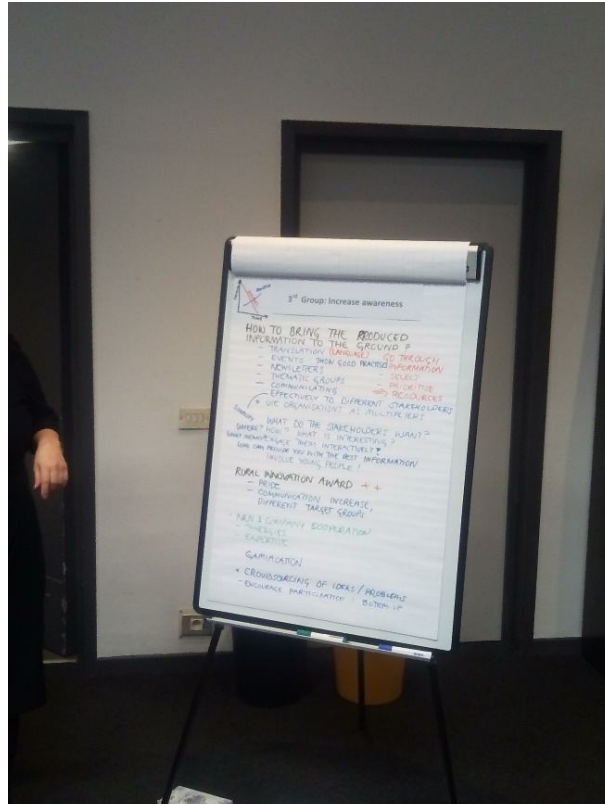 3rd Group: Increase awareness
HOW TO BRING THE PRODUCED
INFORMATION TO THE GROUND?
- TRANSLATION (LANGUAGE)
- EVENTS SHOW GOOD PRACTISES
- NEWSLETTERS
- THEMATIC GROUPS
- COMMUNICATING
EFFECTIVELY TO DIFFERENT STAKEHOLDERS
USE ORGANISATIONS AS MULTIPLIERS
GO THROUGH
INFORMATION
- SELECT
- PRIORITISE
⇒ RESOURCES
WHAT DO THE STAKEHOLDERS WANT?
HOW? WHAT IS INTERESTING?
THEM INTERACTIVELY?
WHO CAN PROVIDE YOU WITH THE BEST INFORMATION
INVOLVE YOUNG PEOPLE!
RURAL INNOVATION AWARD ++
- PRIDE
- COMMUNICATION INCREASE,
DIFFERENT TARGET GROUPS
& COMPANY COOPERATION
- SYNERGIES
- EXPERTISE
GAMIFICATION
CROWDSOURCING OF IDEAS/PROBLEMS
- ENCOURAGE PARTICIPATION BOTTOM UP